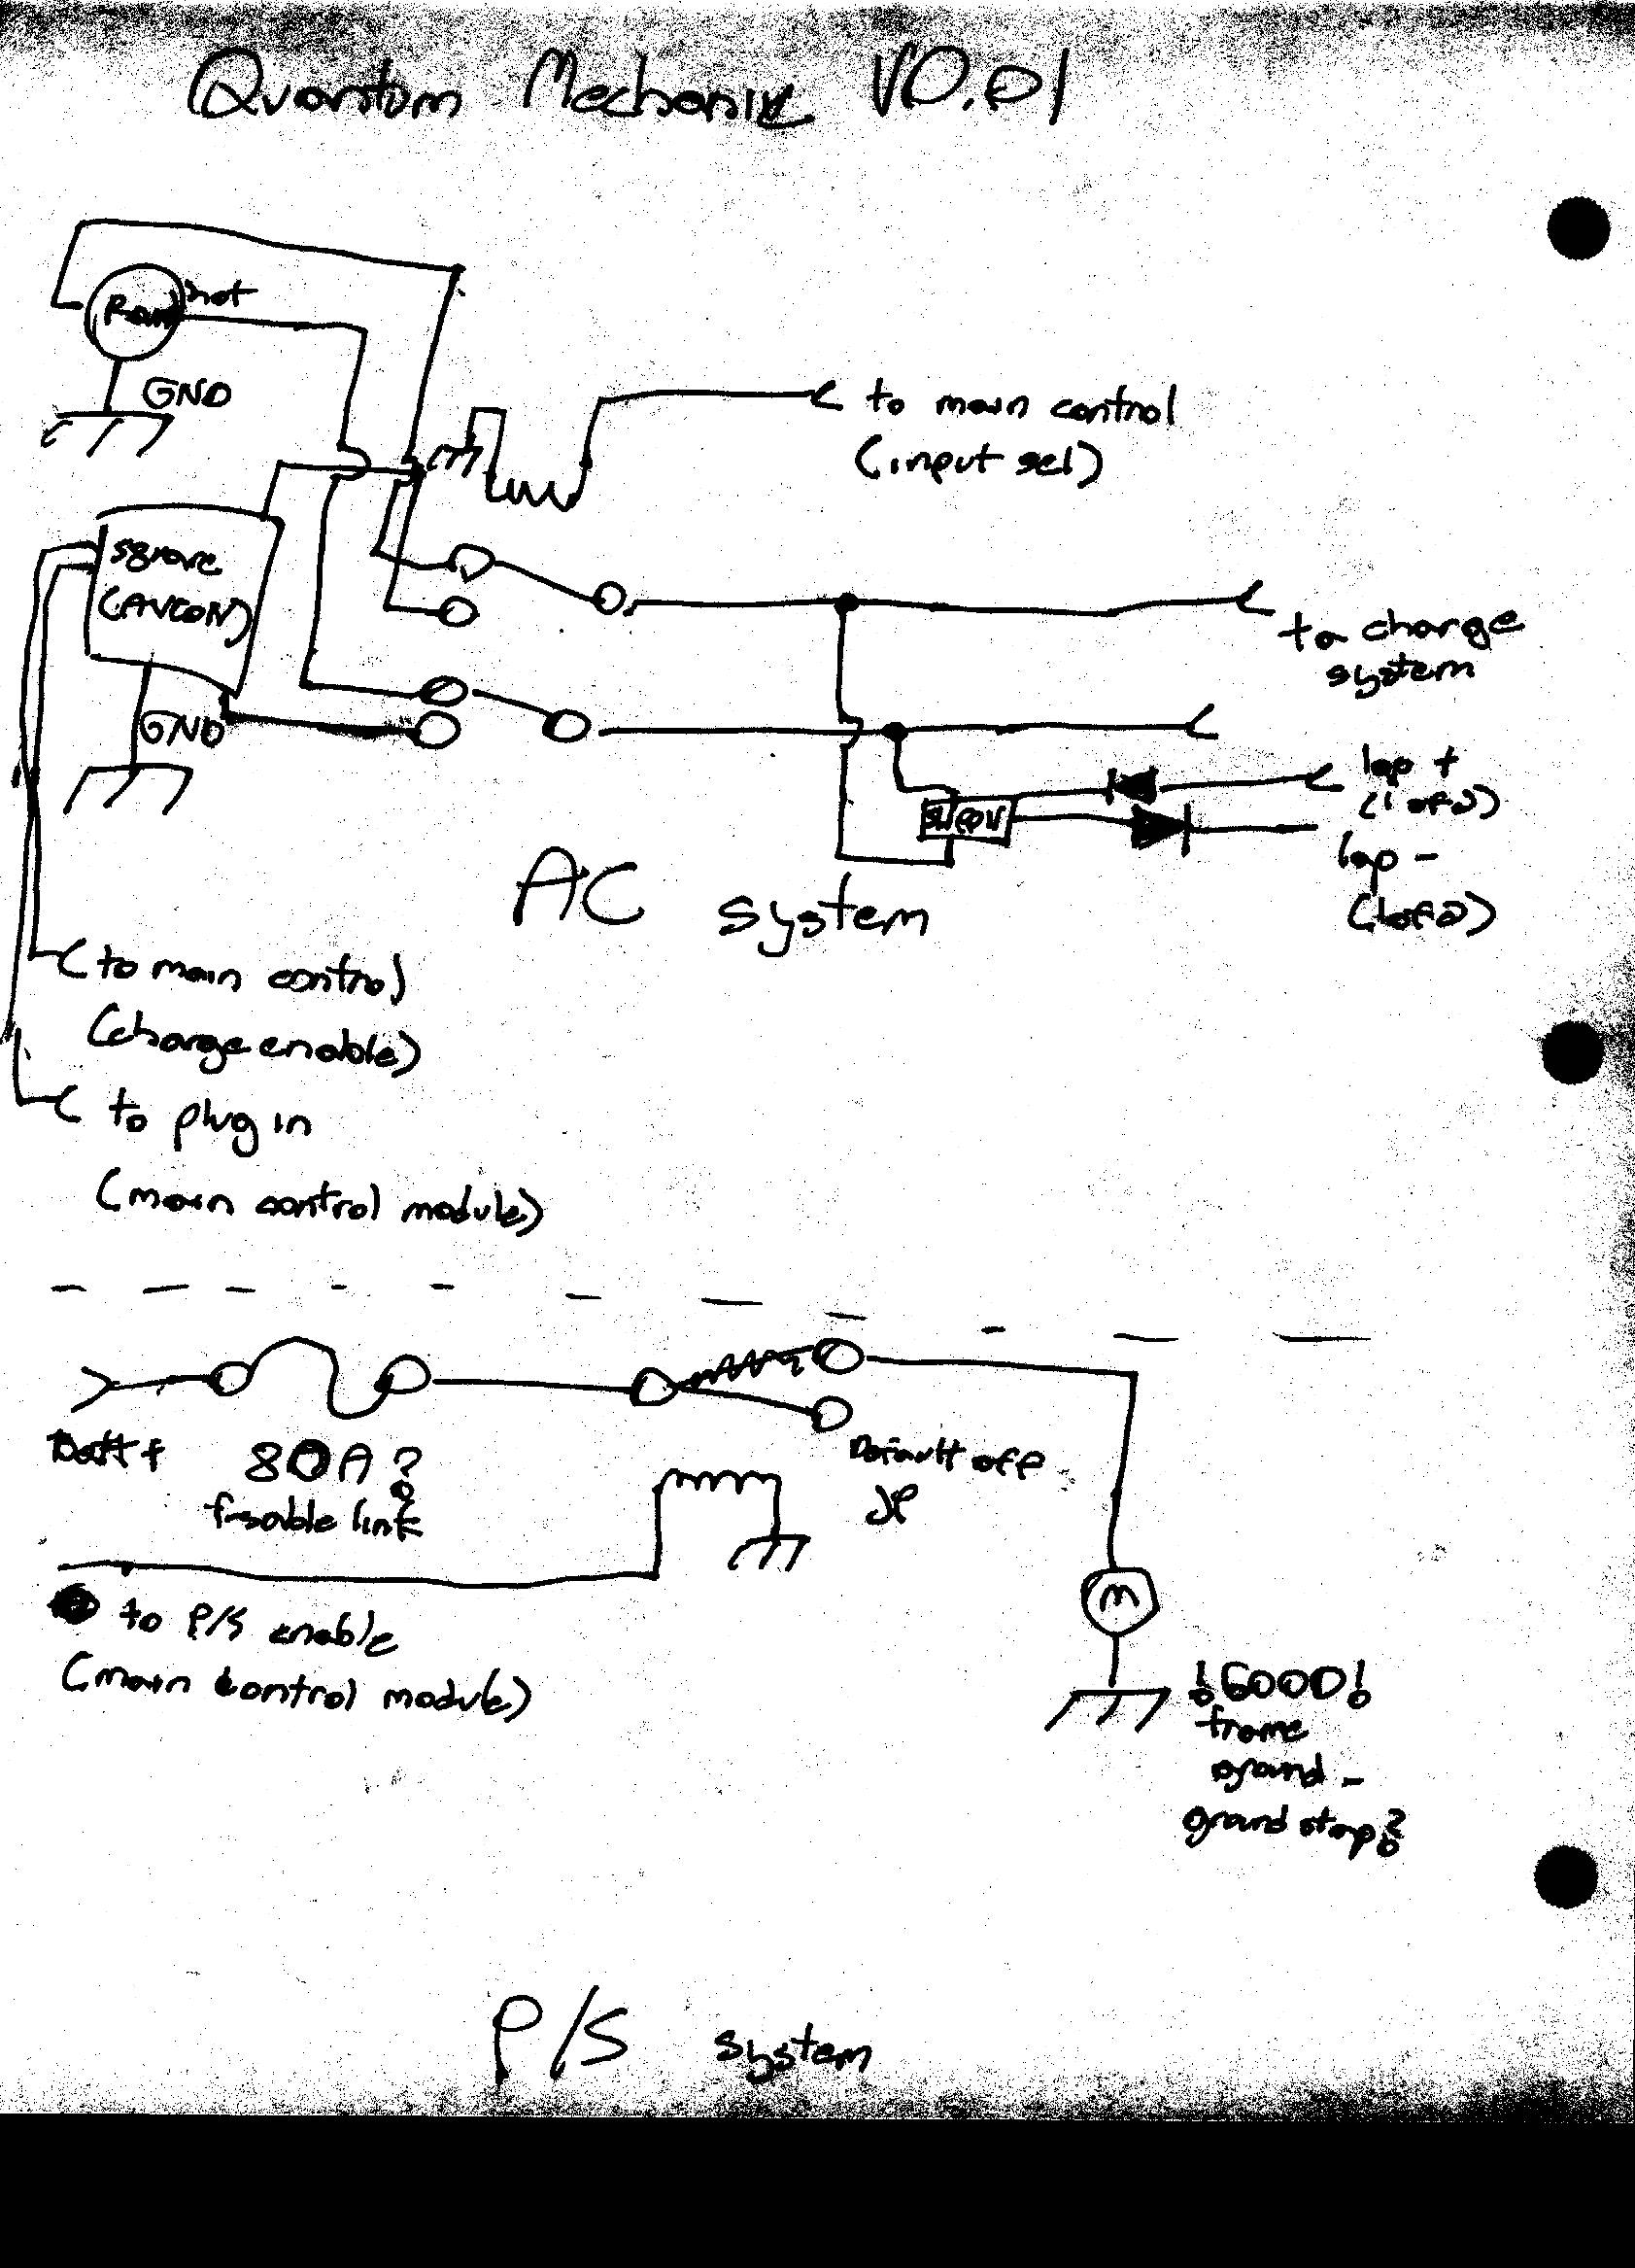 Quantum Mechanix V0.01
hot
GND
to main control
(input sel)
square
(AVCON)
to charge
system
GND
lap +
(1 of 2)
lap -
(1 of 2)
AC system
(to main control)
(charge enable)
to plug in
(main control module)
Batt +
80A?
fusable link
Default off
to P/S enable
(main control module)
M
!GOOD!
frame
ground -
ground strap?
P/S system